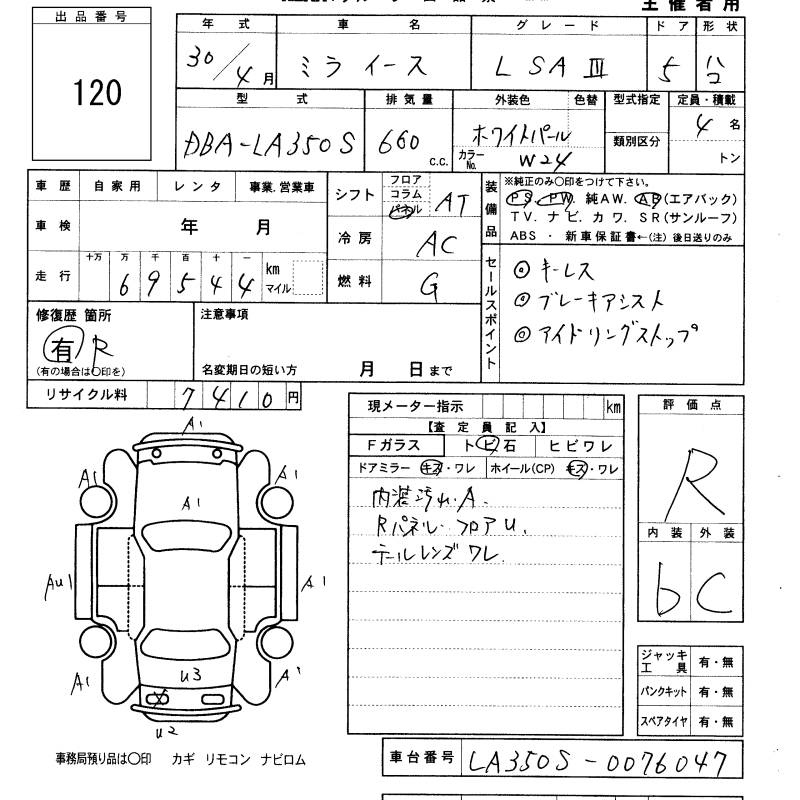 主催者用
出品番号
120
年式 車名 グレード ドア 形状
30/4月 ミライース L SAⅢ 5 ハコ
型式 排気量 外装色 色替 型式指定 定員・積載
DBA-LA350S 660 c.c. ホワイトパール 4名
カラーNo. W24 類別区分 トン
車歴 自家用 レンタ 事業.営業車
車検 年 月
走行 十万 万 千 百 十 一
69544 km マイル
シフト フロア コラム パネル AT
冷房 AC
燃料 G
装備品
※純正のみ○印をつけて下さい。
PS. PW. 純AW. AB(エアバック)
TV. ナビ. カワ. SR(サンルーフ)
ABS ・ 新車保証書←(注) 後日送りのみ
セールスポイント
◎ キーレス
◎ ブレーキアシスト
◎ アイドリングストップ
修復歴 箇所
有 R
(有の場合は○印を)
注意事項
名変期日の短い方 月 日まで
リサイクル料 7410円
現メーター指示 km
【査定員記入】
Fガラス トビ石 ヒビワレ
ドアミラー キズ・ワレ ホイール(CP) キズ・ワレ
内装汚れ.A.
Rパネル.フロアU.
テールレンズ ワレ
評価点
R
内装 外装
b C
ジャッキ工具 有・無
パンクキット 有・無
スペアタイヤ 有・無
A1
A1 A1
A1
AU1 A1
U3
A1 A1
U2
事務局預り品は○印 カギ リモコン ナビロム
車台番号 LA350S-0076047